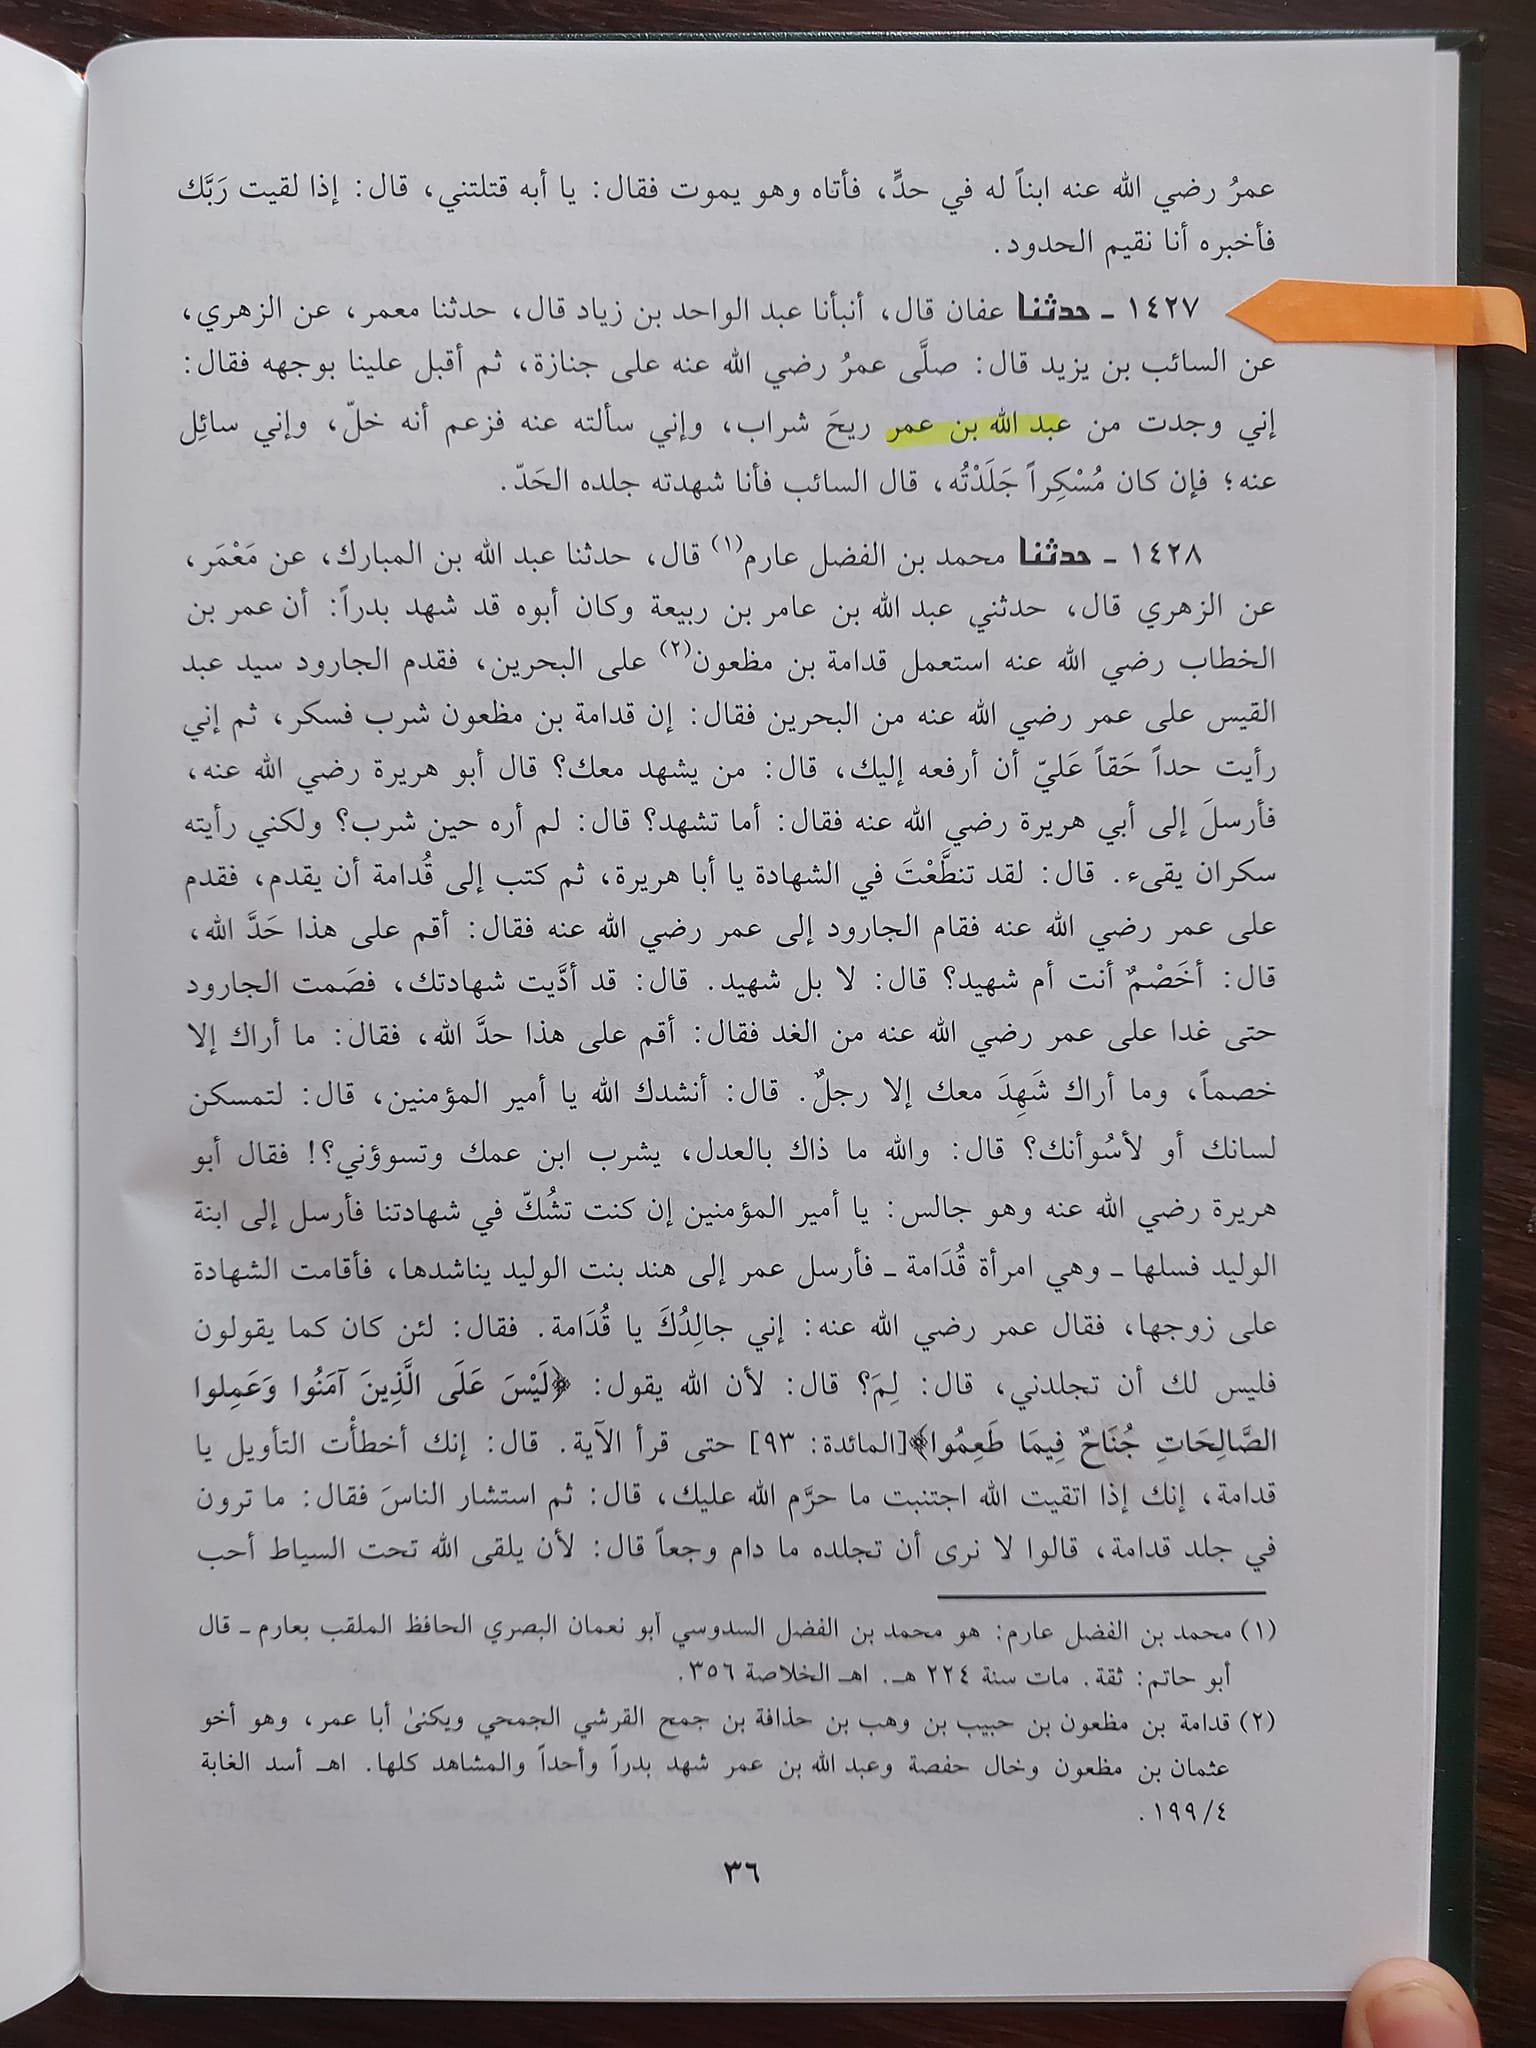 عمرُ رضي الله عنه ابناً له في حدٍّ، فأتاه وهو يموت فقال: يا أبه قتلتني، قال: إذا لقيت رَبَّك
فأخبره أنا نقيم الحدود.
١٤٢٧ ـ حدثنا عفان قال، أنبأنا عبد الواحد بن زياد قال، حدثنا معمر، عن الزهري،
عن السائب بن يزيد قال: صلَّى عمرُ رضي الله عنه على جنازة، ثم أقبل علينا بوجهه فقال:
إني وجدت من عبد الله بن عمر ريحَ شراب، وإني سألته عنه فزعم أنه خلّ، وإني سائِل
عنه؛ فإن كان مُسْكِراً جَلَدْتُه، قال السائب فأنا شهدته جلده الحَدّ.
١٤٢٨ ـ حدثنا محمد بن الفضل عارم(١) قال، حدثنا عبد الله بن المبارك، عن مَعْمَر،
عن الزهري قال، حدثني عبد الله بن عامر بن ربيعة وكان أبوه قد شهد بدراً: أن عمر بن
الخطاب رضي الله عنه استعمل قدامة بن مظعون(٢) على البحرين، فقدم الجارود سيد عبد
القيس على عمر رضي الله عنه من البحرين فقال: إن قدامة بن مظعون شرب فسكر، ثم إني
رأيت حداً حَقاً عَليّ أن أرفعه إليك، قال: من يشهد معك؟ قال أبو هريرة رضي الله عنه،
فأرسلَ إلى أبي هريرة رضي الله عنه فقال: أما تشهد؟ قال: لم أره حين شرب؟ ولكني رأيته
سكران يقىء. قال: لقد تنطَّعْتَ في الشهادة يا أبا هريرة، ثم كتب إلى قُدامة أن يقدم، فقدم
على عمر رضي الله عنه فقام الجارود إلى عمر رضي الله عنه فقال: أقم على هذا حَدَّ الله،
قال: أخَصْمٌ أنت أم شهيد؟ قال: لا بل شهيد. قال: قد أدَّيت شهادتك، فصَمت الجارود
حتى غدا على عمر رضي الله عنه من الغد فقال: أقم على هذا حدَّ الله، فقال: ما أراك إلا
خصماً، وما أراك شَهِدَ معك إلا رجلٌ. قال: أنشدك الله يا أمير المؤمنين، قال: لتمسكن
لسانك أو لأسُوأنك؟ قال: والله ما ذاك بالعدل، يشرب ابن عمك وتسوؤني؟! فقال أبو
هريرة رضي الله عنه وهو جالس: يا أمير المؤمنين إن كنت تشُكّ في شهادتنا فأرسل إلى ابنة
الوليد فسلها ـ وهي امرأة قُدَامة ـ فأرسل عمر إلى هند بنت الوليد يناشدها، فأقامت الشهادة
على زوجها، فقال عمر رضي الله عنه: إني جالِدُكَ يا قُدَامة. فقال: لئن كان كما يقولون
فليس لك أن تجلدني، قال: لِمَ؟ قال: لأن الله يقول: ﴿لَيْسَ عَلَى الَّذِينَ آمَنُوا وَعَمِلوا
الصَّالِحَاتِ جُنَاحٌ فِيمَا طَعِمُوا﴾[المائدة: ٩٣] حتى قرأ الآية. قال: إنك أخطأْت التأويل يا
قدامة، إنك إذا اتقيت الله اجتنبت ما حرَّم الله عليك، قال: ثم استشار الناسَ فقال: ما ترون
في جلد قدامة، قالوا لا نرى أن تجلده ما دام وجعاً قال: لأن يلقى الله تحت السياط أحب
(١) محمد بن الفضل عارم: هو محمد بن الفضل السدوسي أبو نعمان البصري الحافظ الملقب بعارم ـ قال
أبو حاتم: ثقة. مات سنة ٢٢٤ هـ. اهـ الخلاصة ٣٥٦.
(٢) قدامة بن مظعون بن حبيب بن وهب بن حذافة بن جمح القرشي الجمحي ويكنىٰ أبا عمر، وهو أخو
عثمان بن مظعون وخال حفصة وعبد الله بن عمر شهد بدراً وأحداً والمشاهد كلها. اهـ أسد الغابة
٤/١٩٩.
٣٦